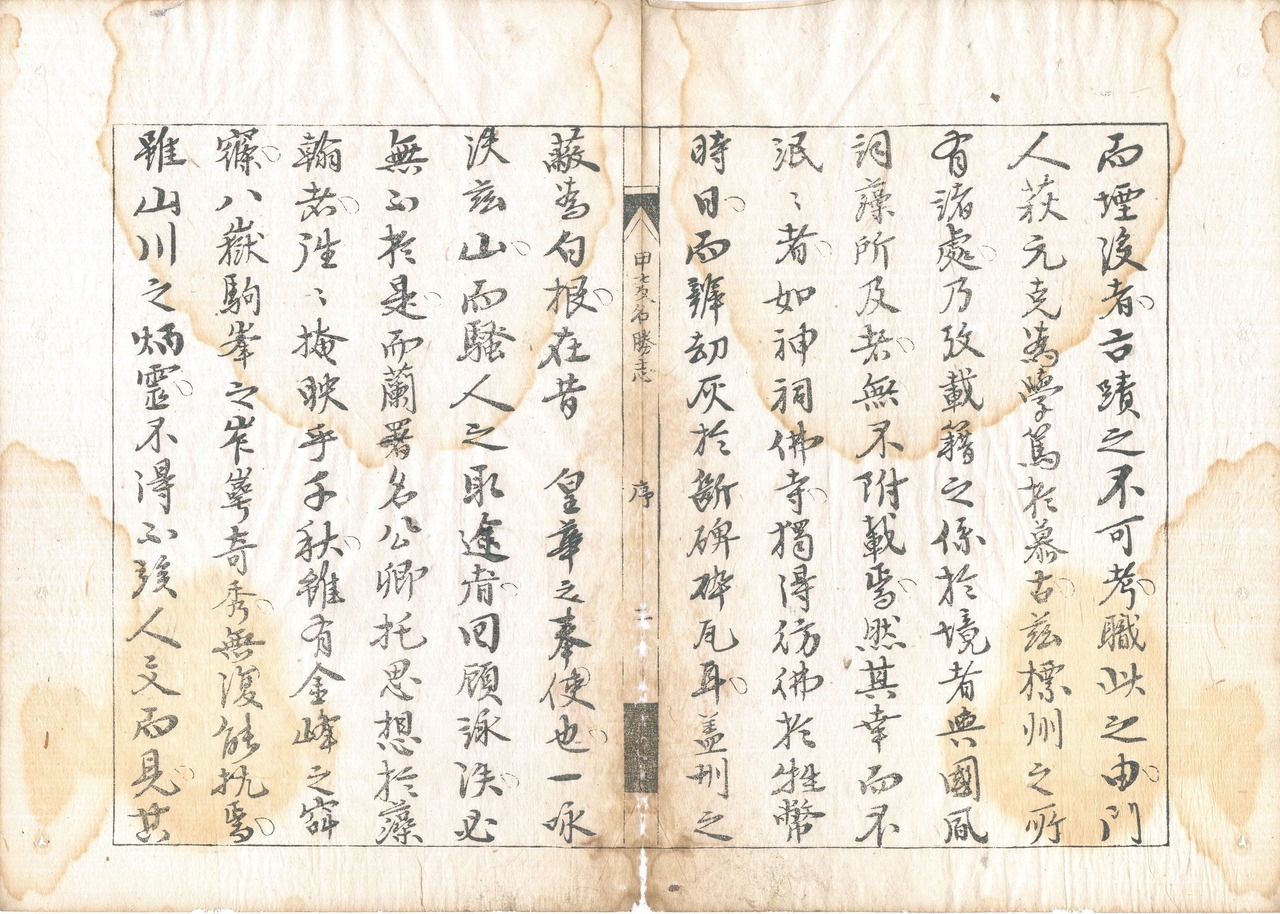 而堙沒者古蹟之不可考職此之由門
人萩元克為學篤於慕古茲標州之所
有諸處乃攷載籍之係於境者與國風
詞藻所及者無不附載焉然其幸而不
泯〻者如神祠佛寺獨得彷彿於牲幣
時日而辨劫灰於斷碑碎瓦耳蓋刊之
甲斐名勝志
序
二
蔽為勾根在昔 皇華之奉使也一咏
泆茲山而騷人之取途者回顧詠泆必
無不於是而蘭署名公卿托思想於藻
翰者徃〻掩映乎千秋雖有金峰之窟
八嶽駒峯之岝崿奇秀無復能抗焉
雖山川之炳靈不得不竢人文而見其